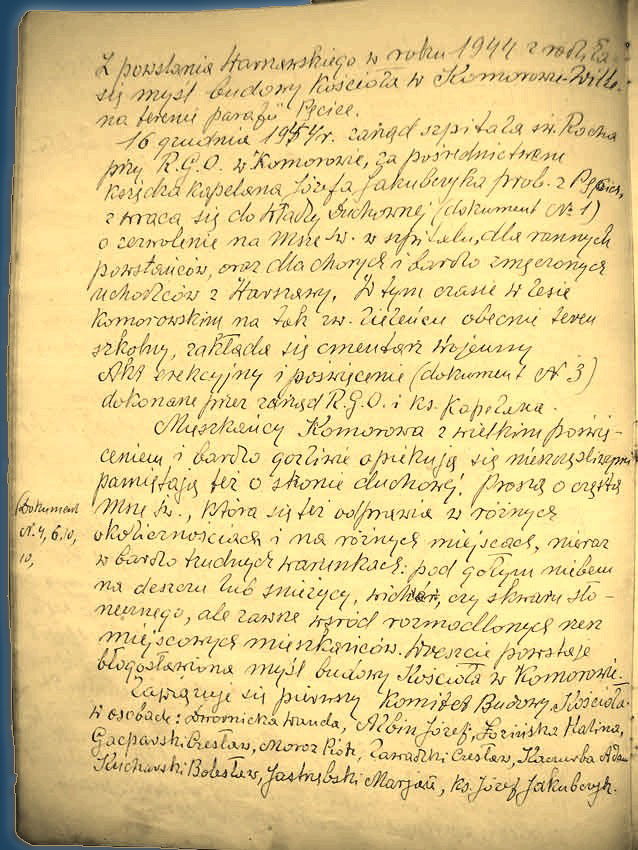 Z powstania Warszawskiego w roku 1944 zrodziła
się myśl budowy Kościoła w Komorowie-Willi.
na terenie parafii Pęcice.
16 grudnia 1944r. zarząd szpitala św. Rocha
przy R.G.O. w Komorowie, za pośrednictwem
księdza kapelana Józefa Jakubczyka prob. z Pęcic,
zwraca się do Władzy Duchownej (dokument № 1)
o zezwolenie na Mszę św. w szpitalu, dla rannych
powstańców, oraz dla chorych i bardzo zmęczonych
uchodźców z Warszawy. W tym czasie w lesie
Komorowskim na tak zw. Zieleńcu obecnie teren
szkolny, zakłada się cmentarz Wojenny
Akt erekcyjny i poświęcenie (dokument № 3)
dokonane przez zarząd R.G.O. i ks. Kapelana.
Mieszkańcy Komorowa z wielkim poświę-
ceniem i bardzo gorliwie opiekują się nieszczęśliwymi
pamiętają też o stronie duchowej. Proszą o częstą
Mszę św., która się też odprawia w różnych
okolicznościach i na różnych miejscach, nieraz
w bardzo trudnych warunkach: pod gołym niebem
na deszczu lub śnieżycy, czy skwaru sło-
necznego, ale zawsze wśród rozmodlonych rzesz
miejscowych mieszkańców. Wreszcie powstaje
błogosławiona myśl budowy Kościoła w Komorowie.
Zawiązuje się pierwszy Komitet Budowy Kościoła
w osobach: Dwornicka Wanda, Albin Józef, Łozińska Halina,
Gacparski Czesław, Moroz Piotr, Zawadzki Czesław, Kaczurba Adam
Kucharski Bolesław, Jastrzębski Marjan, ks. Józef Jakubczyk.
(Dokument
№ 4, 6, 10,
10,